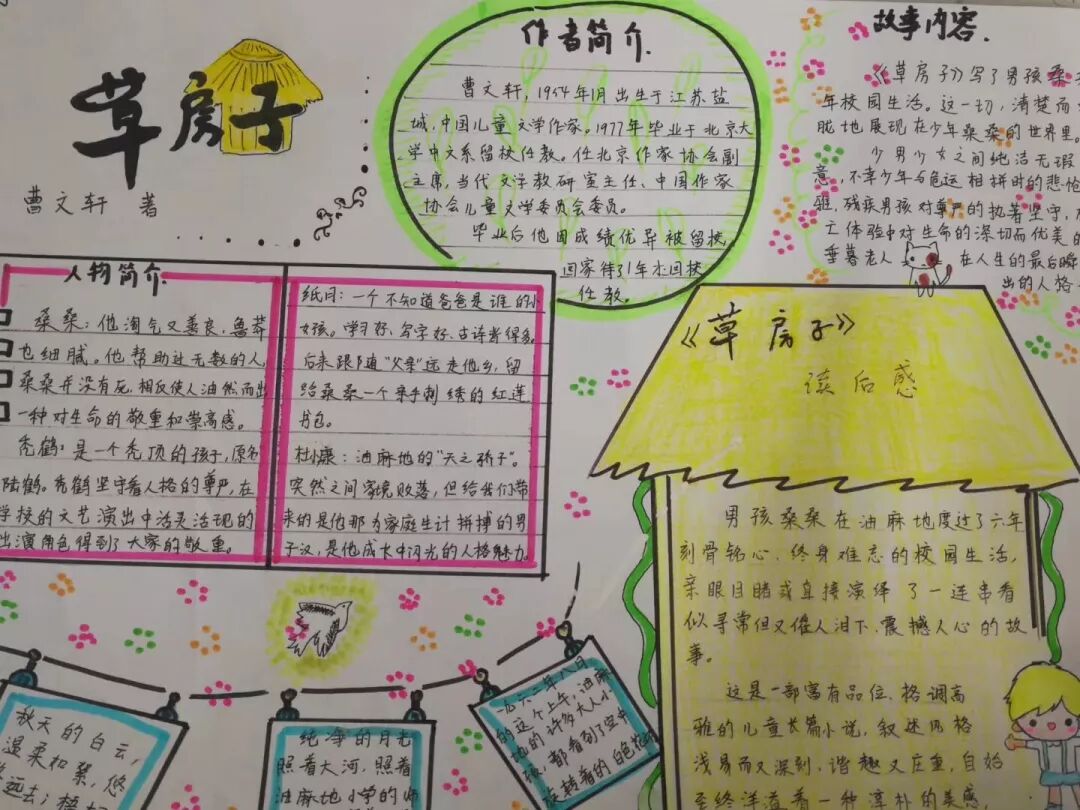 草房子
曹文轩 著
作者简介
曹文轩，1954年1月出生于江苏盐
城，中国儿童文学作家。1977年毕业于北京大
学中文系留校任教。任北京作家协会副
主席，当代文学教研室主任、中国作家
协会儿童文学委员会委员。
毕业后他因成绩优异被留校，
回家待了1年才回校
任教。
故事内容
《草房子》写了男孩桑
年校园生活。这一切，清楚而
胧地展现在少年桑桑的世界里。
少男少女之间纯洁无瑕
意，不幸少年与危运相拼时的悲怆
残疾男孩对尊严的执著坚守，
亡体验中对生命的深切而优美的
垂暮老人 在人生的最后瞬
出的人格
人物简介
桑桑：他淘气又善良，鲁莽
也细腻。他帮助过无数的人，
桑桑并没有死，相反使人油然而出
一种对生命的敬重和崇高感。
秃鹤：是一个秃顶的孩子，原名
陆鹤。秃鹤坚守着人格的尊严，在
学校的文艺演出中活灵活现的
出演角色得到了大家的敬重。
纸月：一个不知道爸爸是谁的小
女孩。学习好、写字好、古诗背得多。
后来跟随“父亲”远走他乡，留
给桑桑一个亲手刺绣的红莲
书包。
杜小康：油麻地的“天之骄子”。
突然之间家境败落，但给我们带
来的是他那为家庭生计拼搏的男
子汉，是他成长中闪光的人格魅力
《草房子》
读后感
男孩桑桑在油麻地度过了六年
刻骨铭心、终身难忘的校园生活，
亲眼目睹或直接演绎了一连串看
似寻常但又催人泪下、震撼人心的故
事。
这是一部富有品位、格调高
雅的儿童长篇小说，叙述风格
浅易而又深刻，谐趣又庄重，自始
至终洋溢着一种淳朴的美感
秋天的白云，
温柔如絮，悠
远去；梧
纯净的月光
照着大河，照着
油麻地小学的师
一九六二年八月
的这个上午，油麻
地的许多大人小
孩，都看到了空中
旋转着的白色